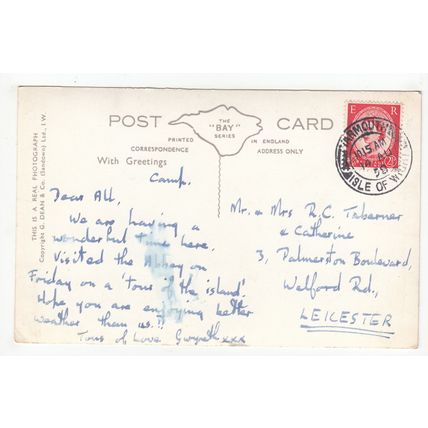 POST CARD
THE
"BAY"
SERIES
PRINTED IN ENGLAND
CORRESPONDENCE ADDRESS ONLY
With Greetings
THIS IS A REAL PHOTOGRAPH
Copyright G. DEAN & Co. (Sandown) Ltd., I.W.
E R
2½
YARMOUTH
10 15 AM
58
ISLE OF WIGHT
Camp.
Dear All,
We are having a
wonderful time here.
Visited the Abbey on
Friday on a 'tour of the island'.
Hope you are enjoying better
weather than us!!
Tons of Love Gwyneth xxx
Mr. & Mrs R.C. Taberner
& Catherine
3, Palmerston Boulevard,
Welford Rd.,
LEICESTER